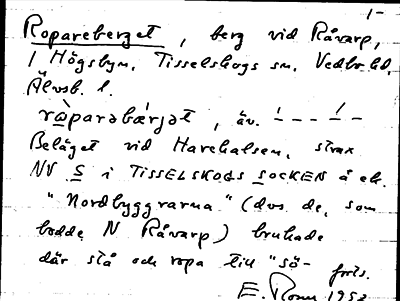 1-
Ropareberget, berg vid Råvarp,
i Högsbyn, Tisselskogs sn, Vedbo hd,
Älvsb. l.
ròparəbærjət, äv. ́- - - ́-
Beläget vid Harehalsen, strax
NV S i TISSELSKOGS SOCKEN å ek.
"Nordbyggrarna" (dvs. de, som
bodde N Råvarp) brukade
där stå och ropa till "sö-
forts.
E. 1953